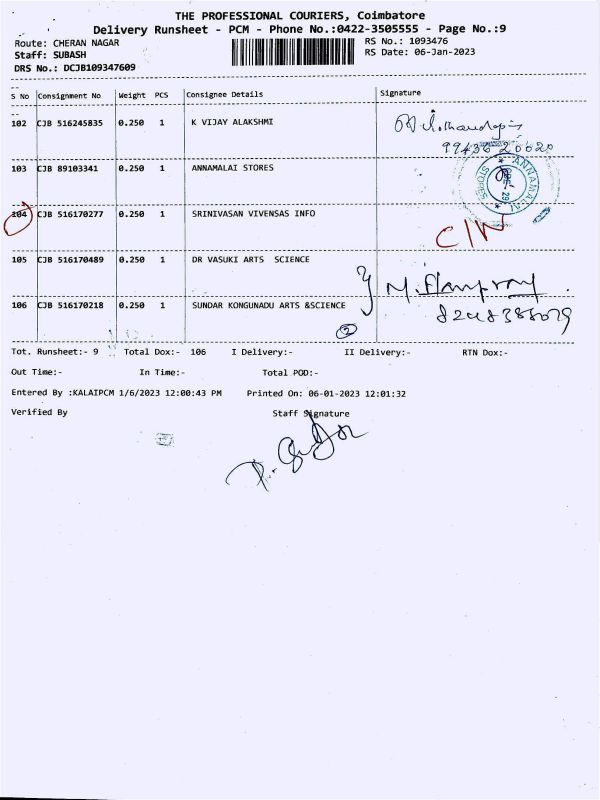 THE PROFESSIONAL COURIERS, Coimbatore
Delivery Runsheet - PCM - Phone No.:0422-3505555 - Page No.:9
Route: CHERAN NAGAR RS No.: 1093476
Staff: SUBASH RS Date: 06-Jan-2023
DRS No.: DCJB109347609
S No Consignment No Weight PCS Consignee Details Signature
102 CJB 516245835 0.250 1 K VIJAY ALAKSHMI
103 CJB 89103341 0.250 1 ANNAMALAI STORES
ANNAMALAI STORES
104 CJB 516170277 0.250 1 SRINIVASAN VIVENSAS INFO
105 CJB 516170489 0.250 1 DR VASUKI ARTS SCIENCE
106 CJB 516170218 0.250 1 SUNDAR KONGUNADU ARTS &SCIENCE
2
Tot. Runsheet:- 9 Total Dox:- 106 I Delivery:- II Delivery:- RTN Dox:-
Out Time:- In Time:- Total POD:-
Entered By :KALAIPCM 1/6/2023 12:00:43 PM Printed On: 06-01-2023 12:01:32
Verified By Staff Signature